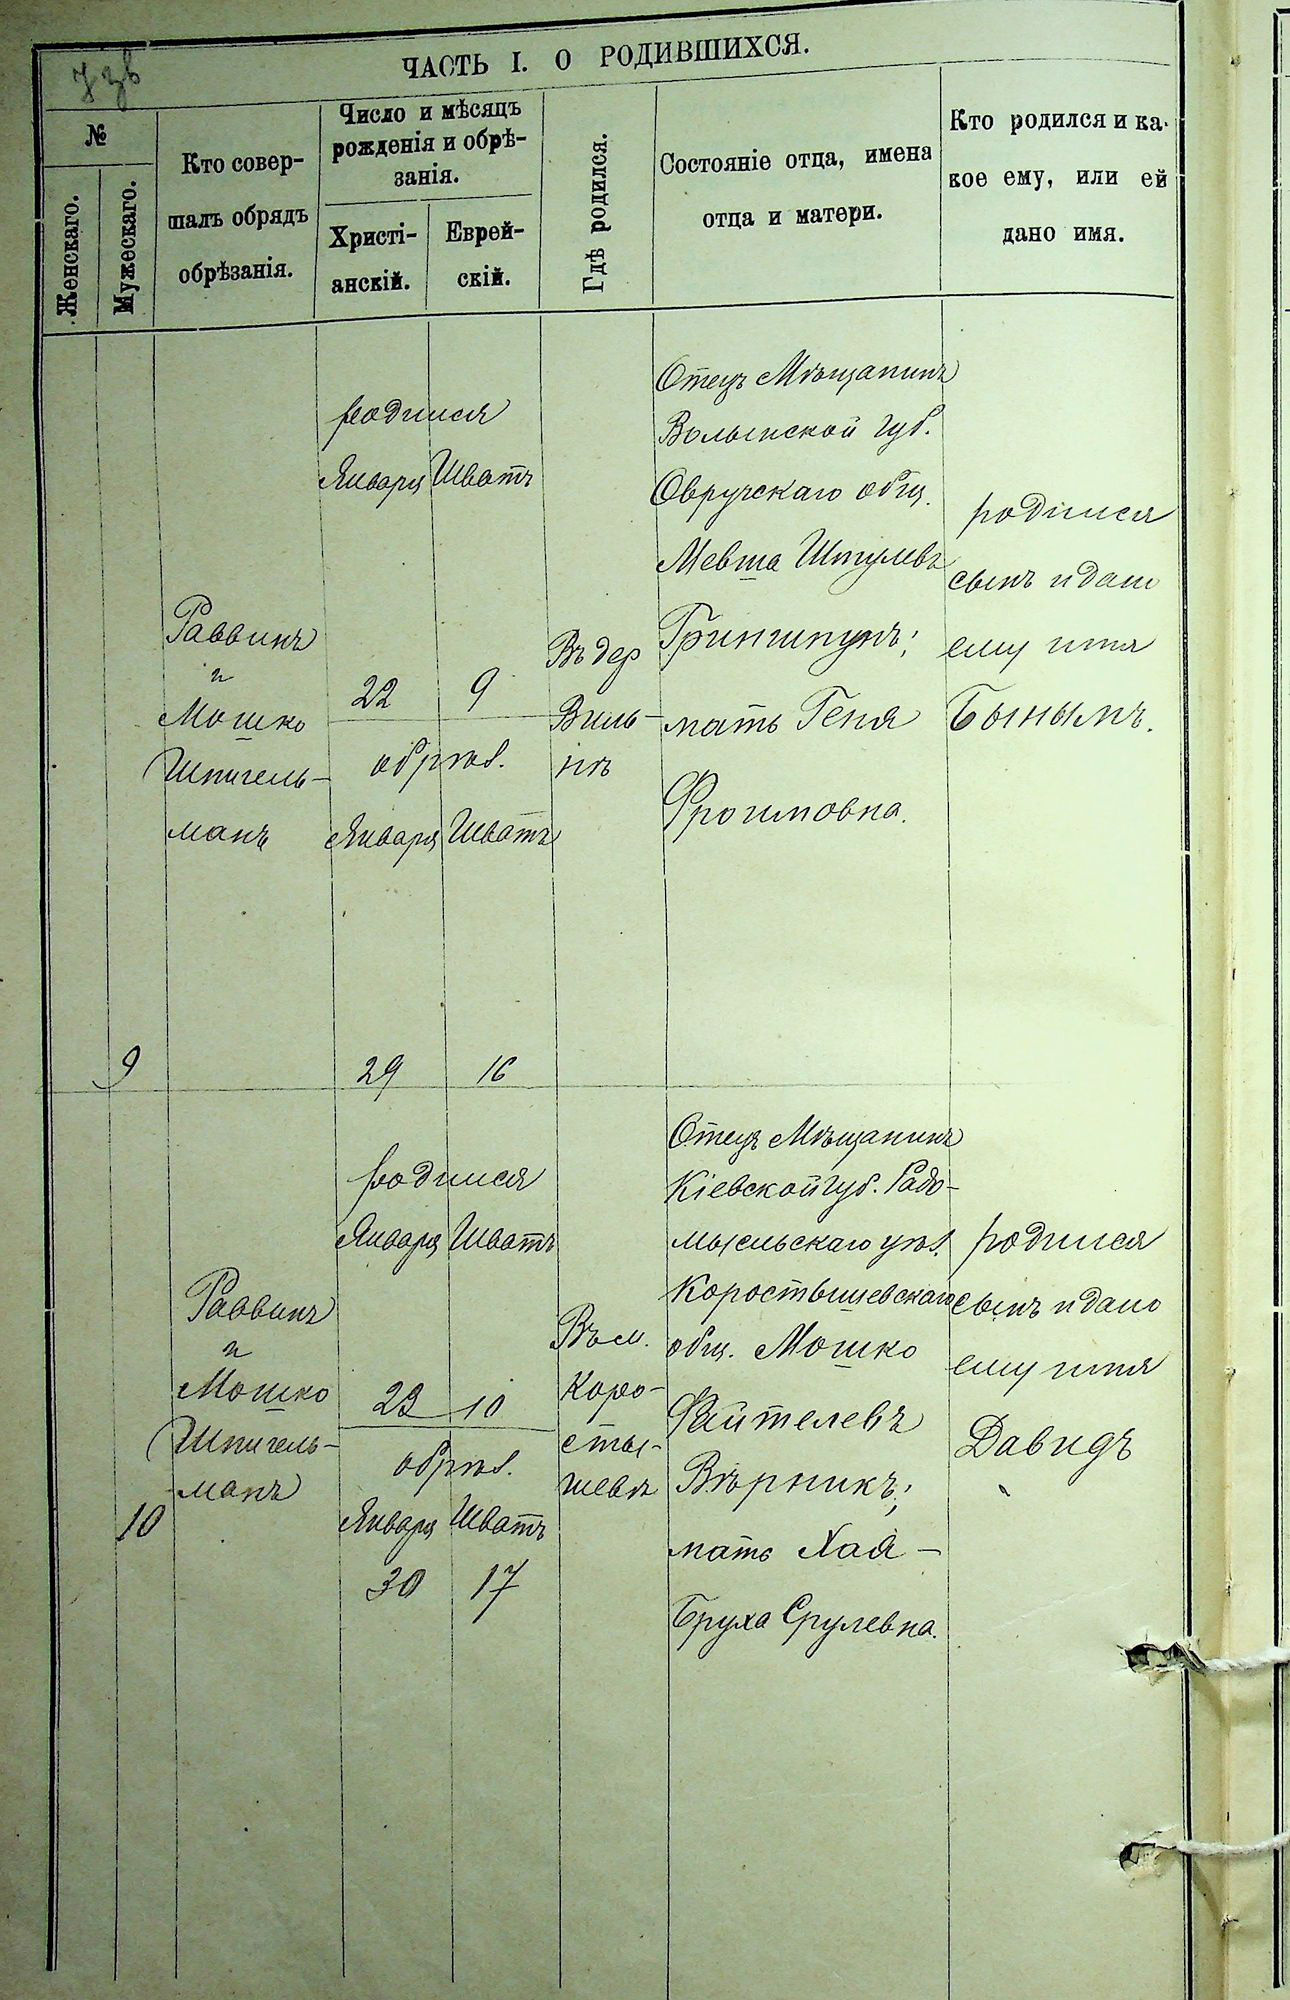 ЧАСТЬ I. О РОДИВШИХСЯ.
№
Женскаго.
Мужескаго.
Кто совер-
шалъ обрядъ
обрѣзанія.
Число и мѣсяцъ
рожденія и обрѣ-
занія.
Христі-
анскій.
Еврей-
скій.
Гдѣ родился.
Состояніе отца, имена
отца и матери.
Кто родился и ка-
кое ему, или ей
дано имя.
9
Раввинъ
и
Мошко
Шпигель-
манъ
родился
Января Шватъ
22 9
обрѣз.
Января Шватъ
29 16
Въ дер
Виль-
нѣ
Отецъ Мѣщанинъ
Волынской губ.
Овручскаго общ.
Мевша Шмулевъ
Гриншпунъ;
мать Геня
Фроимовна.
родился
сынъ и дано
ему имя
Бынымъ.
10
Раввинъ
и
Мошко
Шпигель-
манъ
родился
Января Шватъ
23 10
обрѣз.
Января Шватъ
30 17
Въ м.
Коро-
сты-
шевѣ
Отецъ Мѣщанинъ
Кіевской губ. Радо-
мысльскаго уѣз.
Коростышевскаго
общ. Мошко
Файтелевъ
Вѣрникъ;
мать Хая-
Бруха Срулевна.
родился
сынъ и дано
ему имя
Давидъ